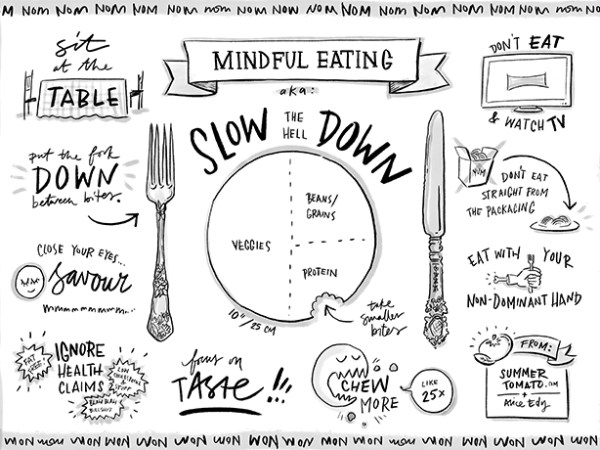 NOM NOM NOM NOM nom NOM NOM NOM NOM NOM NOM NOM nom NO
sit
at the
TABLE
MINDFUL EATING
aka:
SLOW THE HELL DOWN
DON'T EAT
& WATCH TV
put the fork
DOWN
between bites.
VEGGIES
BEANS/
GRAINS
PROTEIN
10"/25 CM
take
smaller
bites
YUM
DON'T EAT
STRAIGHT FROM
THE PACKAGING
CLOSE YOUR EYES...
Savour
mmmmmmmmm...
EAT WITH YOUR
NON-DOMINANT HAND
IGNORE
HEALTH
CLAIMS
FAT
FREE!
focus on
TASTE!!!
CHEW
MORE
LIKE
25x
FROM:
SUMMER
TOMATO.COM
+
Alice Edy
NOM nom NOM NOM NOM NOM NOM NOM NOM NOM NOM nom NOM NOM NOM